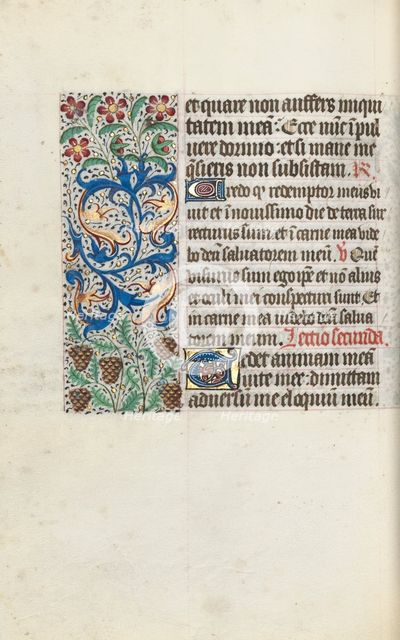 et quare non auffers iniqui
tatem meā: Ecce nūc ī pul
uere dormio: et si mane me
q̄sieris non subsistam. R̸
Credo qꝫ redemptor meus vi
uit et ī nouissimo die de terra sur
recturus sum et ī carne mea vide
bo deū saluatorem meū. V̸ Quē
visurus sum ego ip̄e et nō alius
et oculi mei conspecturi sunt Et
in carne mea videbo deū salua
torem meum. Lectio secunda.
Tedet animam meā
vite mee: dimittam
aduersū me eloquiū meū.
Heritage
Heritage